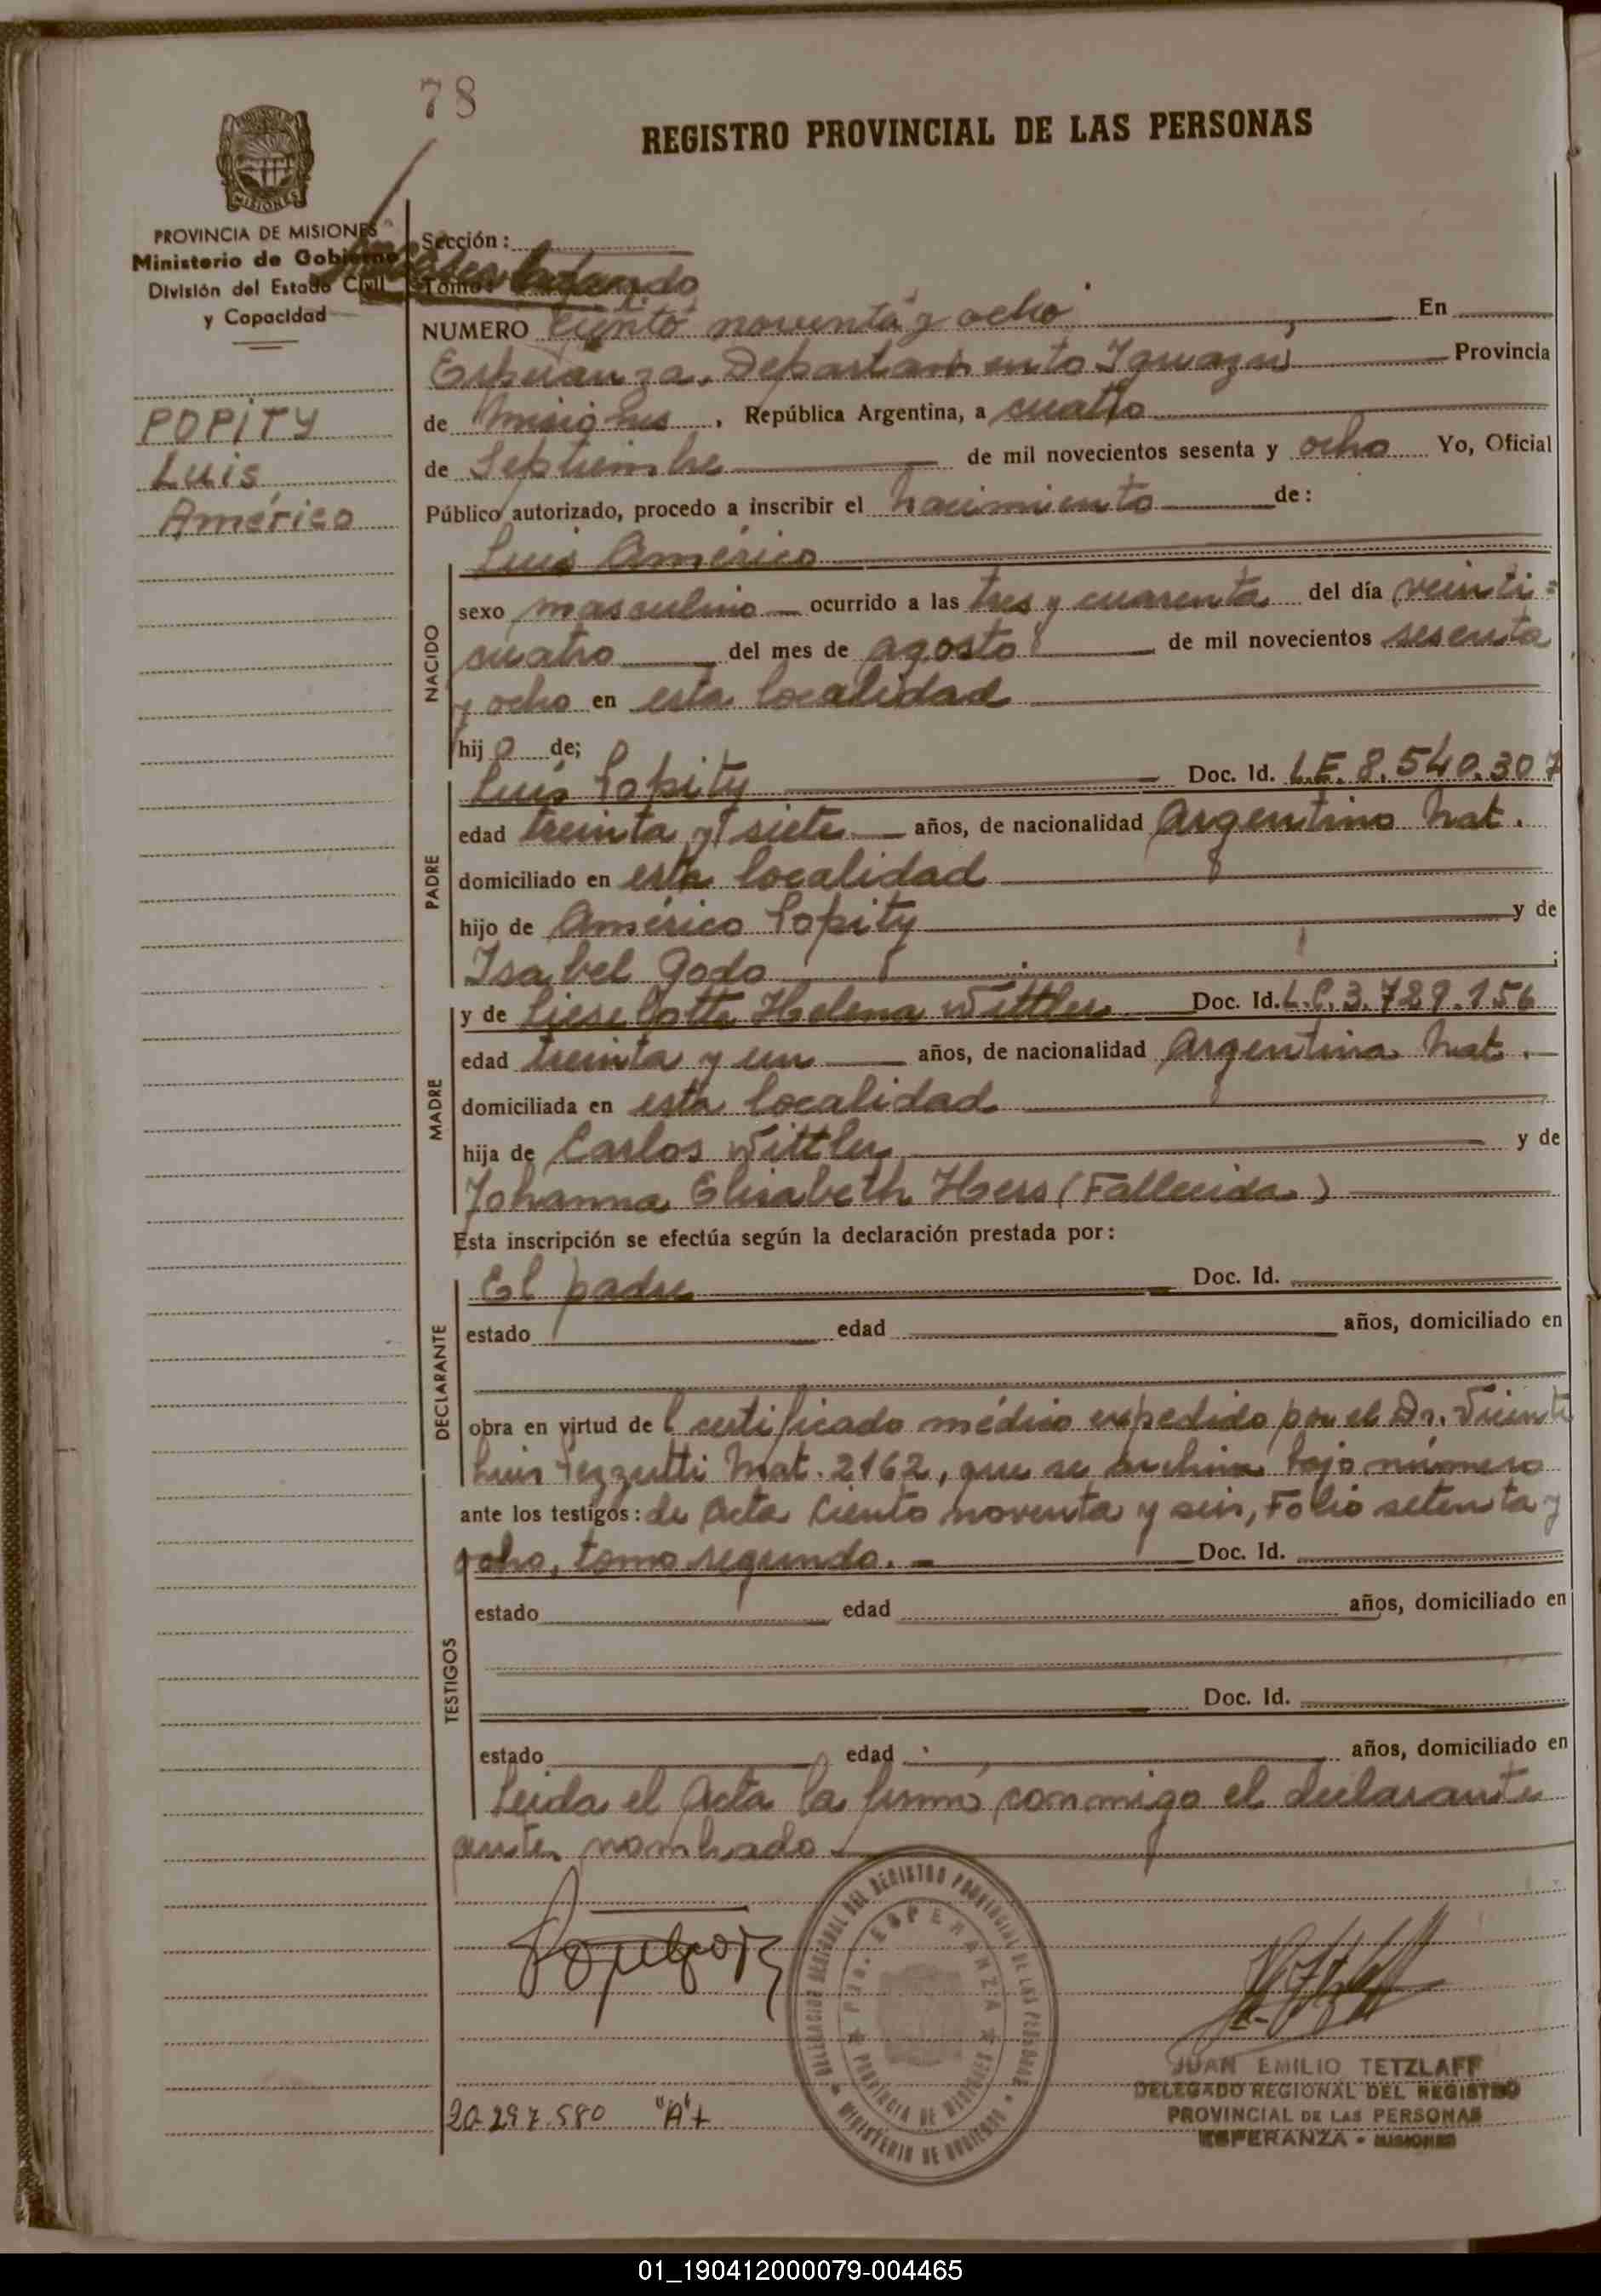 78
REGISTRO PROVINCIAL DE LAS PERSONAS
MISIONES
PROVINCIA DE MISIONES
Ministerio de Gobierno
División del Estado Civil
y Capacidad
POPITY
Luis
Américo
Sección:
Tomo:
NUMERO Ciento noventa y ocho En
Esperanza, Departamento Iguazú Provincia
de Misiones, República Argentina, a cuatro
de Septiembre de mil novecientos sesenta y ocho Yo, Oficial
Público autorizado, procedo a inscribir el nacimiento de:
Luis Américo
NACIDO
sexo masculino ocurrido a las tres y cuarenta del día veinti=
cuatro del mes de agosto de mil novecientos sesenta
y ocho en esta localidad
hijo de;
PADRE
Luis Popity Doc. Id. L.E. 8.540.307
edad treinta y siete años, de nacionalidad Argentino Nat.
domiciliado en esta localidad
hijo de Américo Popity y de
Isabel Godo ;
MADRE
y de Lieselotte Helena Wittler Doc. Id. L.C. 3.789.156
edad treinta y un años, de nacionalidad Argentina Nat.
domiciliada en esta localidad
hija de Carlos Wittler y de
Johanna Elisabeth Hess (Fallecida)
Esta inscripción se efectúa según la declaración prestada por:
DECLARANTE
El padre Doc. Id.
estado edad años, domiciliado en
obra en virtud del certificado médico expedido por el Dr. Vicente
Luis Pezzutti Mat. 2162, que se archiva bajo número
ante los testigos: de Acta Ciento noventa y seis, Folio setenta y
ocho, tomo segundo. Doc. Id.
TESTIGOS
estado edad años, domiciliado en
Doc. Id.
estado edad años, domiciliado en
Leida el Acta la firmó conmigo el declarante
antes nombrado
DELEGACION REGIONAL DEL REGISTRO PROVINCIAL DE LAS PERSONAS
MINISTERIO DE GOBIERNO
Pto. ESPERANZA
PROVINCIA DE MISIONES
JUAN EMILIO TETZLAFF
DELEGADO REGIONAL DEL REGISTRO
PROVINCIAL DE LAS PERSONAS
ESPERANZA - MISIONES
20.297.580 "A"+
01_190412000079-004465